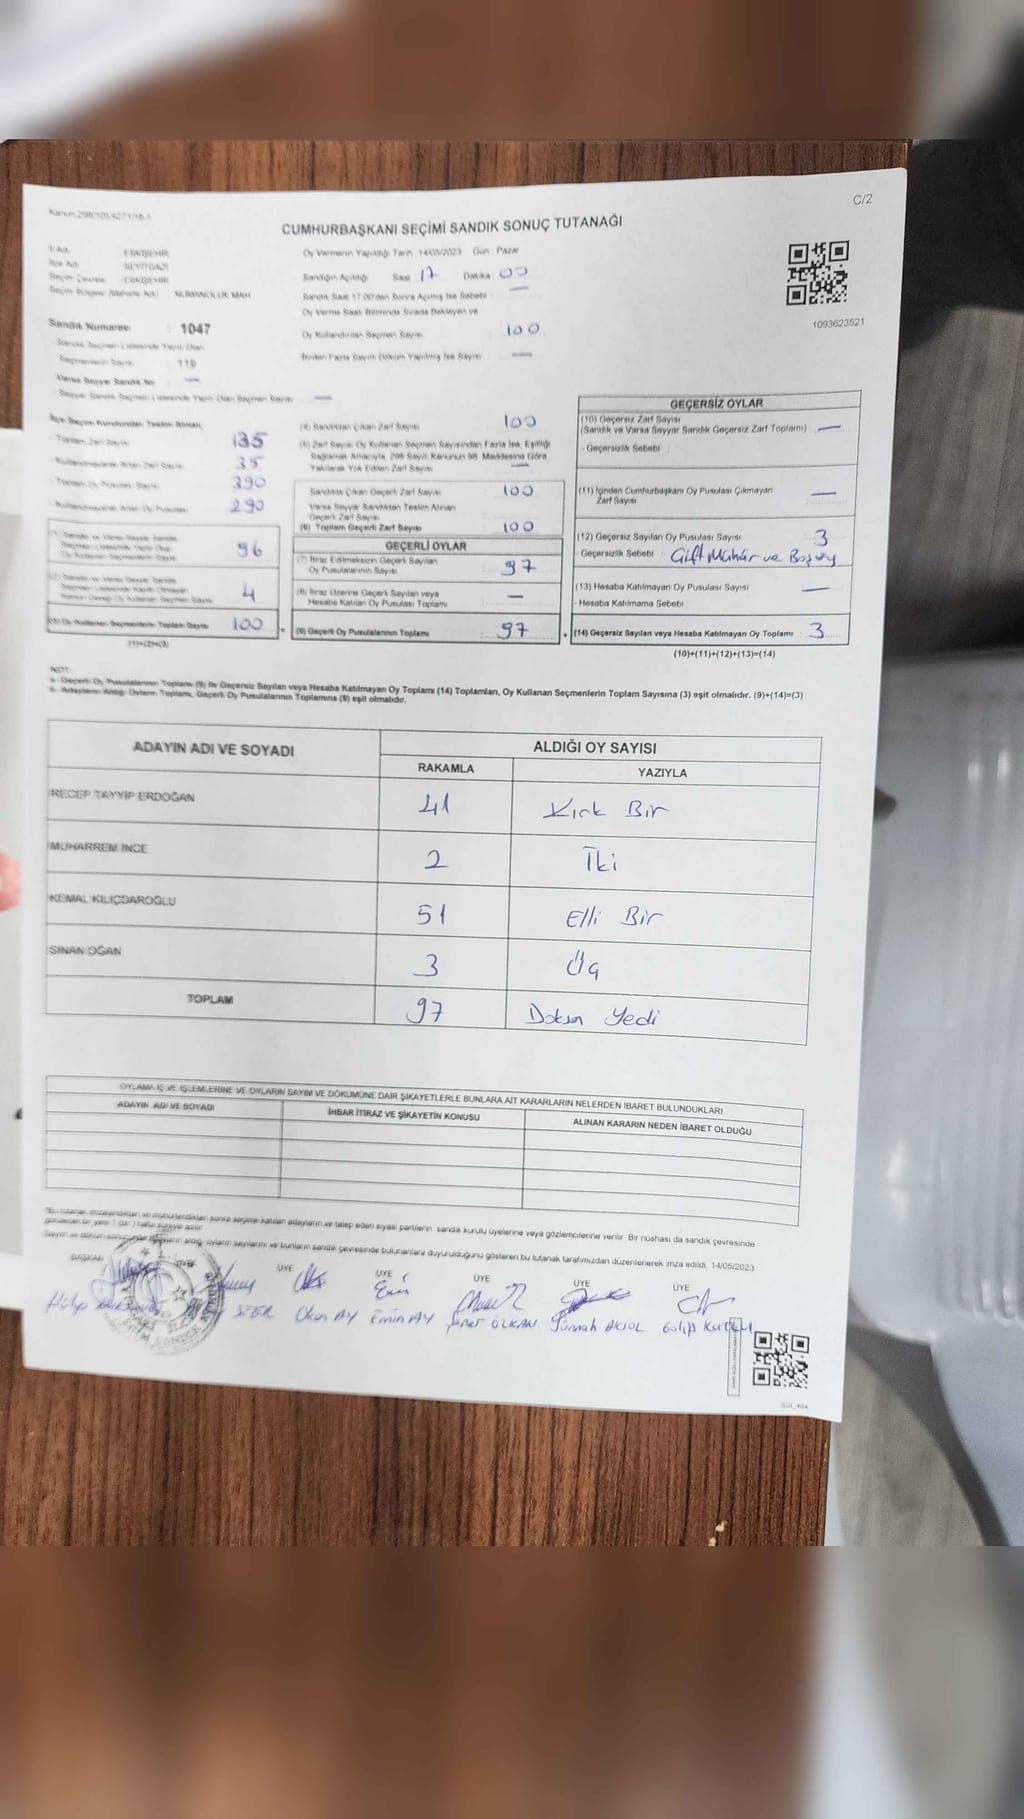 C/2
Kanun:298/105/6271/16-1
CUMHURBAŞKANI SEÇİMİ SANDIK SONUÇ TUTANAĞI
İl Adı : ESKİŞEHİR
İlçe Adı : SEYİTGAZİ
Seçim Çevresi : ESKİŞEHİR
Oy Vermenin Yapıldığı Tarih :14/05/2023 Gün : Pazar
Sandığın Açıldığı Saat : 17 Dakika : 00
Sandık Saat 17:00'den Sonra Açılmış İse Sebebi : —
Oy Verme Saati Bitiminde Sırada Bekleyen ve
Oy Kullandırılan Seçmen Sayısı : 100
Birden Fazla Sayım Döküm Yapılmış İse Sayısı : —
1093623521
Sandık Numarası : 1047
- Sandık Seçmen Listesinde Yazılı Olan
Seçmenlerin Sayısı :
Varsa Seyyar Sandık No : —
- Seyyar Sandık Seçmen Listesinde Yazılı Olan Seçmen Sayısı : —
İlçe Seçim Kurulundan Teslim Alınan;
- Toplam Zarf Sayısı : 135
- Kullanılmayarak Artan Zarf Sayısı : 35
- Toplam Oy Pusulası Sayısı : 390
- Kullanılmayarak Artan Oy Pusulası : 290
(1) Sandık ve Varsa Seyyar Sandık
Seçmen Listesinde Yazılı Olup
Oy Kullanan Seçmenlerin Sayısı : 96
(2) Sandık ve Varsa Seyyar Sandık
Seçmen Listesinde Yazılı Olmayan
Kanun Gereği Oy Kullanan Seçmen Sayısı : 4
(3) Oy Kullanan Seçmenlerin Toplam Sayısı : 100
(1)+(2)=(3)
(4) Sandıktan Çıkan Zarf Sayısı : 100
(5) Zarf Sayısı Oy Kullanan Seçmen Sayısından Fazla İse, Eşitliği
Sağlamak Amacıyla, 298 Sayılı Kanunun 98. Maddesine Göre
Yakılarak Yok Edilen Zarf Sayısı : —
Sandıkta Çıkan Geçerli Zarf Sayısı : 100
Varsa Seyyar Sandıktan Teslim Alınan
Geçerli Zarf Sayısı :
(6) Toplam Geçerli Zarf Sayısı : 100
GEÇERLİ OYLAR
(7) İtiraz Edilmeksizin Geçerli Sayılan
Oy Pusulalarının Sayısı : 97
(8) İtiraz Üzerine Geçerli Sayılan veya
Hesaba Katılan Oy Pusulası Toplamı : —
(9) Geçerli Oy Pusulalarının Toplamı : 97
GEÇERSİZ OYLAR
(10) Geçersiz Zarf Sayısı
(Sandık ve Varsa Seyyar Sandık Geçersiz Zarf Toplamı) : —
- Geçersizlik Sebebi :
(11) İçinden Cumhurbaşkanı Oy Pusulası Çıkmayan
Zarf Sayısı : —
(12) Geçersiz Sayılan Oy Pusulası Sayısı : 3
- Geçersizlik Sebebi : Çift Mühür ve Boş oy
(13) Hesaba Katılmayan Oy Pusulası Sayısı : —
- Hesaba Katılmama Sebebi :
(14) Geçersiz Sayılan veya Hesaba Katılmayan Oy Toplamı : 3
(10)+(11)+(12)+(13)=(14)
NOT:
* Geçerli Oy Pusulalarının Toplamı (9) ile Geçersiz Sayılan veya Hesaba Katılmayan Oy Toplamı (14) Toplamları, Oy Kullanan Seçmenlerin Toplam Sayısına (3) eşit olmalıdır. (9)+(14)=(3)
* Adayların Aldığı Oyların Toplamı, Geçerli Oy Pusulalarının Toplamına (9) eşit olmalıdır.
ADAYIN ADI VE SOYADI
ALDIĞI OY SAYISI
RAKAMLA YAZIYLA
RECEP TAYYİP ERDOĞAN 41 Kırk Bir
MUHARREM İNCE 2 İki
KEMAL KILIÇDAROĞLU 51 Elli Bir
SİNAN OĞAN 3 Üç
TOPLAM 97 Doksan Yedi
OYLAMA İŞ VE İŞLEMLERİNE VE OYLARIN SAYIM VE DÖKÜMÜNE DAİR ŞİKAYETLERLE BUNLARA AİT KARARLARIN NELERDEN İBARET BULUNDUKLARI
ADAYIN ADI VE SOYADI İHBAR İTİRAZ VE ŞİKAYETİN KONUSU ALINAN KARARIN NEDEN İBARET OLDUĞU
*Bu tutanak imzalandıktan ve mühürlendikten sonra seçime katılan adayların ve talep eden siyasi partilerin sandık kurulu üyelerine veya gözlemcilerine verilir. Bir nüshası da sandık çevresinde
görülecek bir yere 1 (bir) hafta süreyle asılır.
aldığı oyların sayılarını ve bunların sandık çevresinde bulunanlara duyurulduğunu gösteren bu tutanak tarafımızdan düzenlenerek imza edildi. 14/05/2023
BAŞKAN ÜYE ÜYE ÜYE ÜYE ÜYE ÜYE
Hülya SEZER Okan AY Emin AY ÖZKAN AKYOL